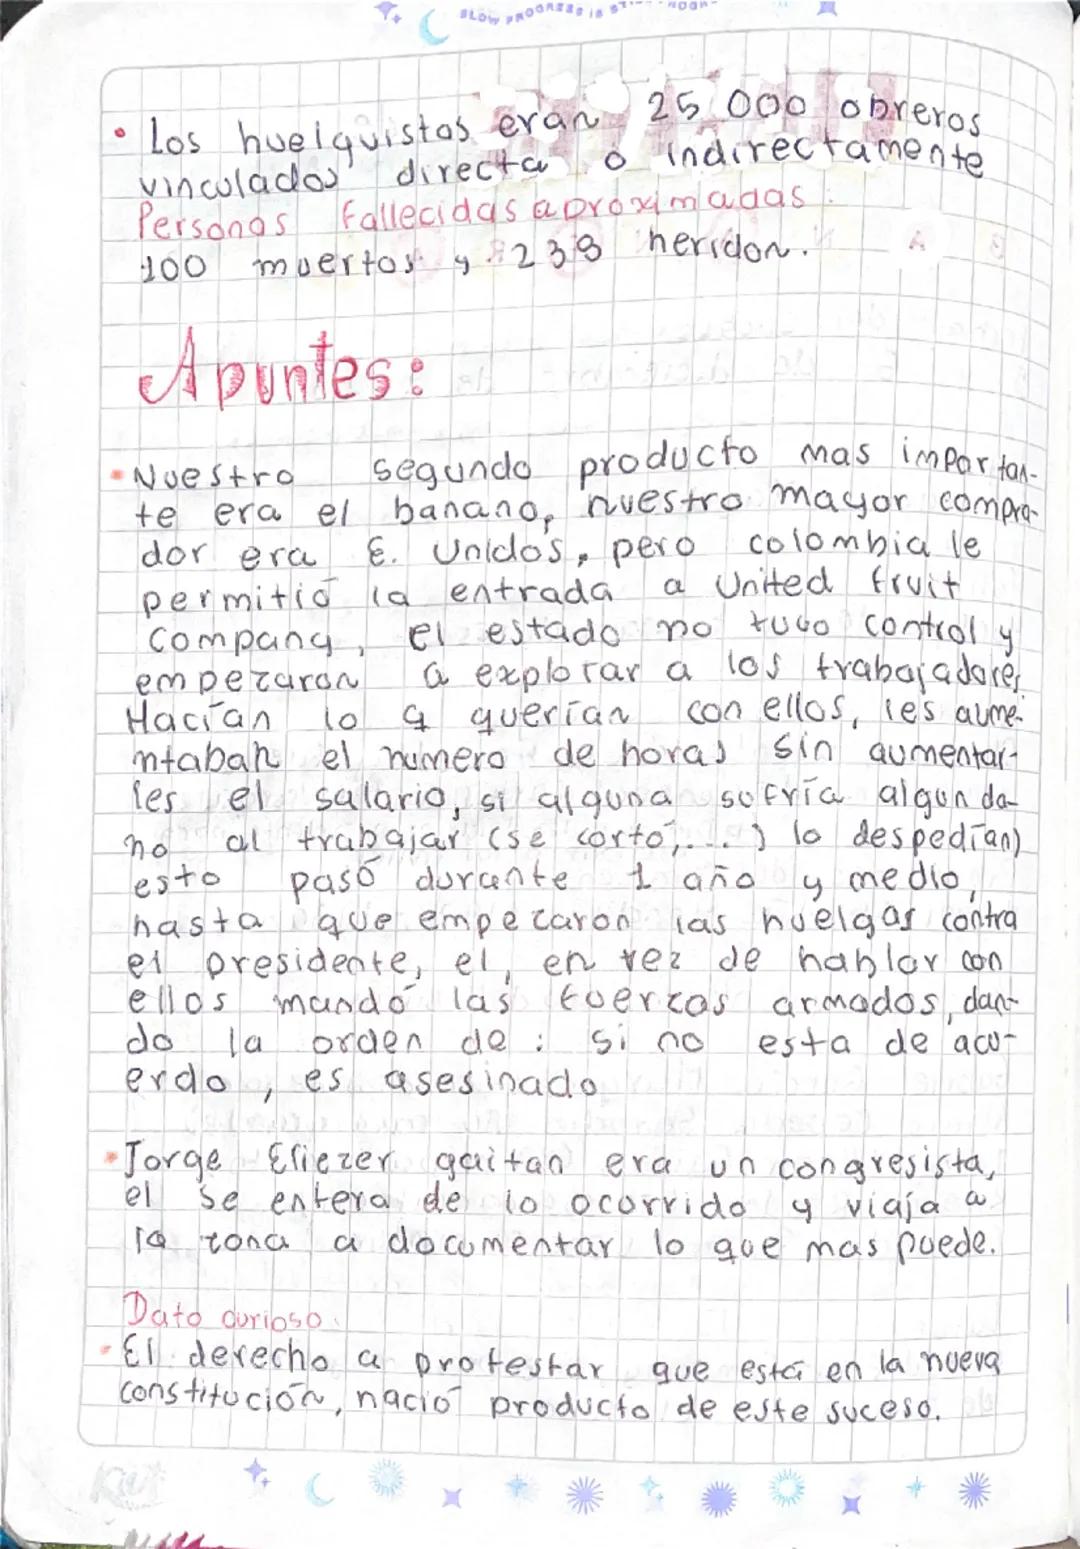 SLOW PROGRESS IS
• Los huelguistas eran 25 000 obreros
vinculados directa o indirectamente
Personas fallecidas aproximadas:
100 muertos y 238 heridon.
Apuntes:
• Nuestro segundo producto mas importan-
te era el banano, nuestro mayor compra-
dor era E. Unidos, pero colombia le
permitió la entrada a United fruit
Company, el estado no tuvo control y
empezaron a explotar a los trabajadores
Hacían lo q querían con ellos, les aume-
ntaban el numero de horas sin aumentar-
les el salario, si alguna sufría algun da-
no al trabajar (se corto,...) lo despedían)
esto pasó durante 1 año y medio,
hasta que empezaron las huelgas contra
el presidente, el, en vez de hablar con
ellos mandó las fuerzas armados, dan-
do la orden de: si no esta de acu-
erdo, es asesinado
• Jorge Eliezer gaitan era un congresista,
el se entera de lo ocurrido y viaja a
la zona a documentar lo que mas puede.
Dato curioso:
• El derecho a protestar que está en la nueva
constitución, nació producto de este suceso.